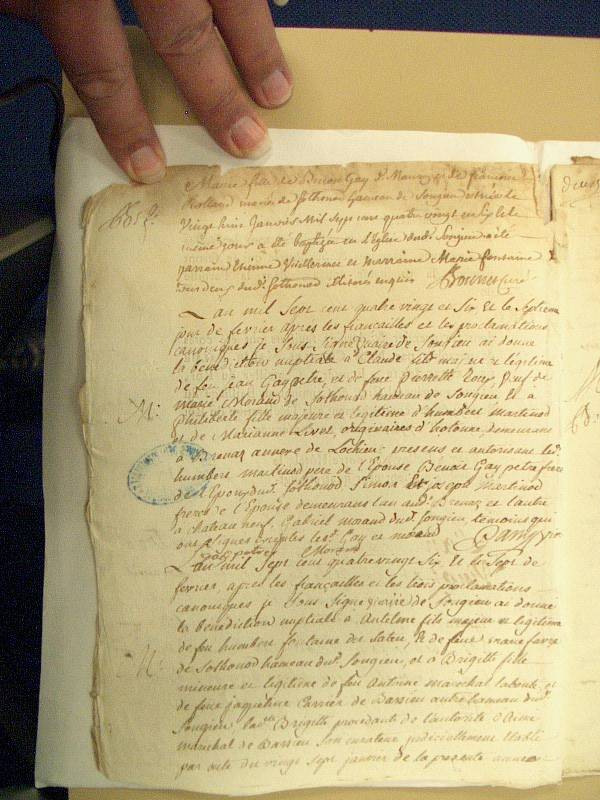 Marie fille de Simon Gay et de françoise
Rolland mariés de Sothonod hameau de Songieu est née le
vingt huit Janvier Mil Sept cent quatre vingt six et le
même jour a été baptizée en l'Eglise dudt Songieu a été
parrain Etienne Vuillermet et marraine Marie fontaine
tous deux dudt Sothonod illiterés enquis curé
L'an mil Sept cent quatre vingt et Six et le Septieme
jour de fevrier après les fiançailles et les proclamations
canoniques je Sous Signé vicaire de Songieu ai donné
la bénédiction nuptiale à Claude fils majeur et légitime
de feu jean Gay et de feue pierrette Roux veuf de
marie Morand de Sothonod hameau de Songieu Et à
Philiberte fille majeure et légitime d'humbert martinod
M:
et de Marianne Livet, originaires d'hotonne, demeurans
à Brenaz annexe de Lochieu presens et autorisans led.
humbert martinod père de l'Epouse Benoit Gay petra frere
de l'Epoux dudt Sothonod Simon Et joseph Martinod
freres de l'Epouse demeurans l'un aud. Brenaz et l'autre
à chateau neuf, Gabriel morand dudt Songieu temoins qui
ont Signés exceptés led. Gay et morand
Morand
L'an mil Sept cent quatre vingt Six Et le Sept de
fevrier, après les fiançailles et les trois proclamations
canoniques je Sous Signé vicaire de Songieu ai donné
la bénédiction nuptiale à Antelme fils majeur et légitime
de feu humbert fontaine et de feue
M:
de Sothonod hameau dudt Songieu, et à Brigitte fille
mineure et légitime de feu Antoine maréchal laboureur et
de feue jaqueline Carrier de Bassieu autre hameau dudt
Songieu, ladte Brigitte procédante de l'autorité d'Aimé
maréchal de Bassieu Son curateur judiciellement établi
par acte du vingt Sept janvier de la presente année